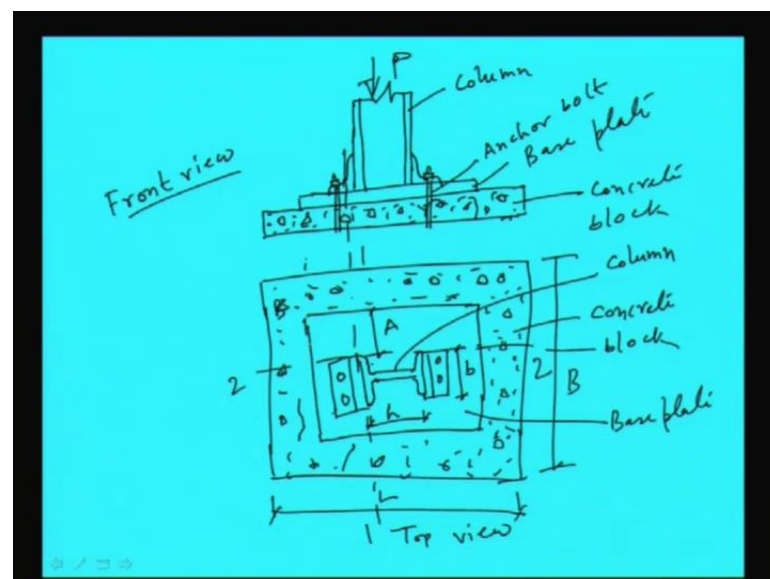 P
Column
Anchor bolt
Base plate
Front view
Concrete
block
Column
B
A
Concrete
block
2
2
b
B
h
Base plate
L
1
Top view